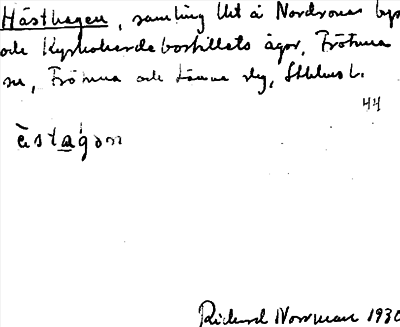 Hästhagen, samling tlt å Nordronas bys
och Kyrkoherdebostillets ägor, Frötuna
sn, Frötuna och Länna slg, Sthlms l.
44
ɛ̀stạgən
Rickard Norrman 1930